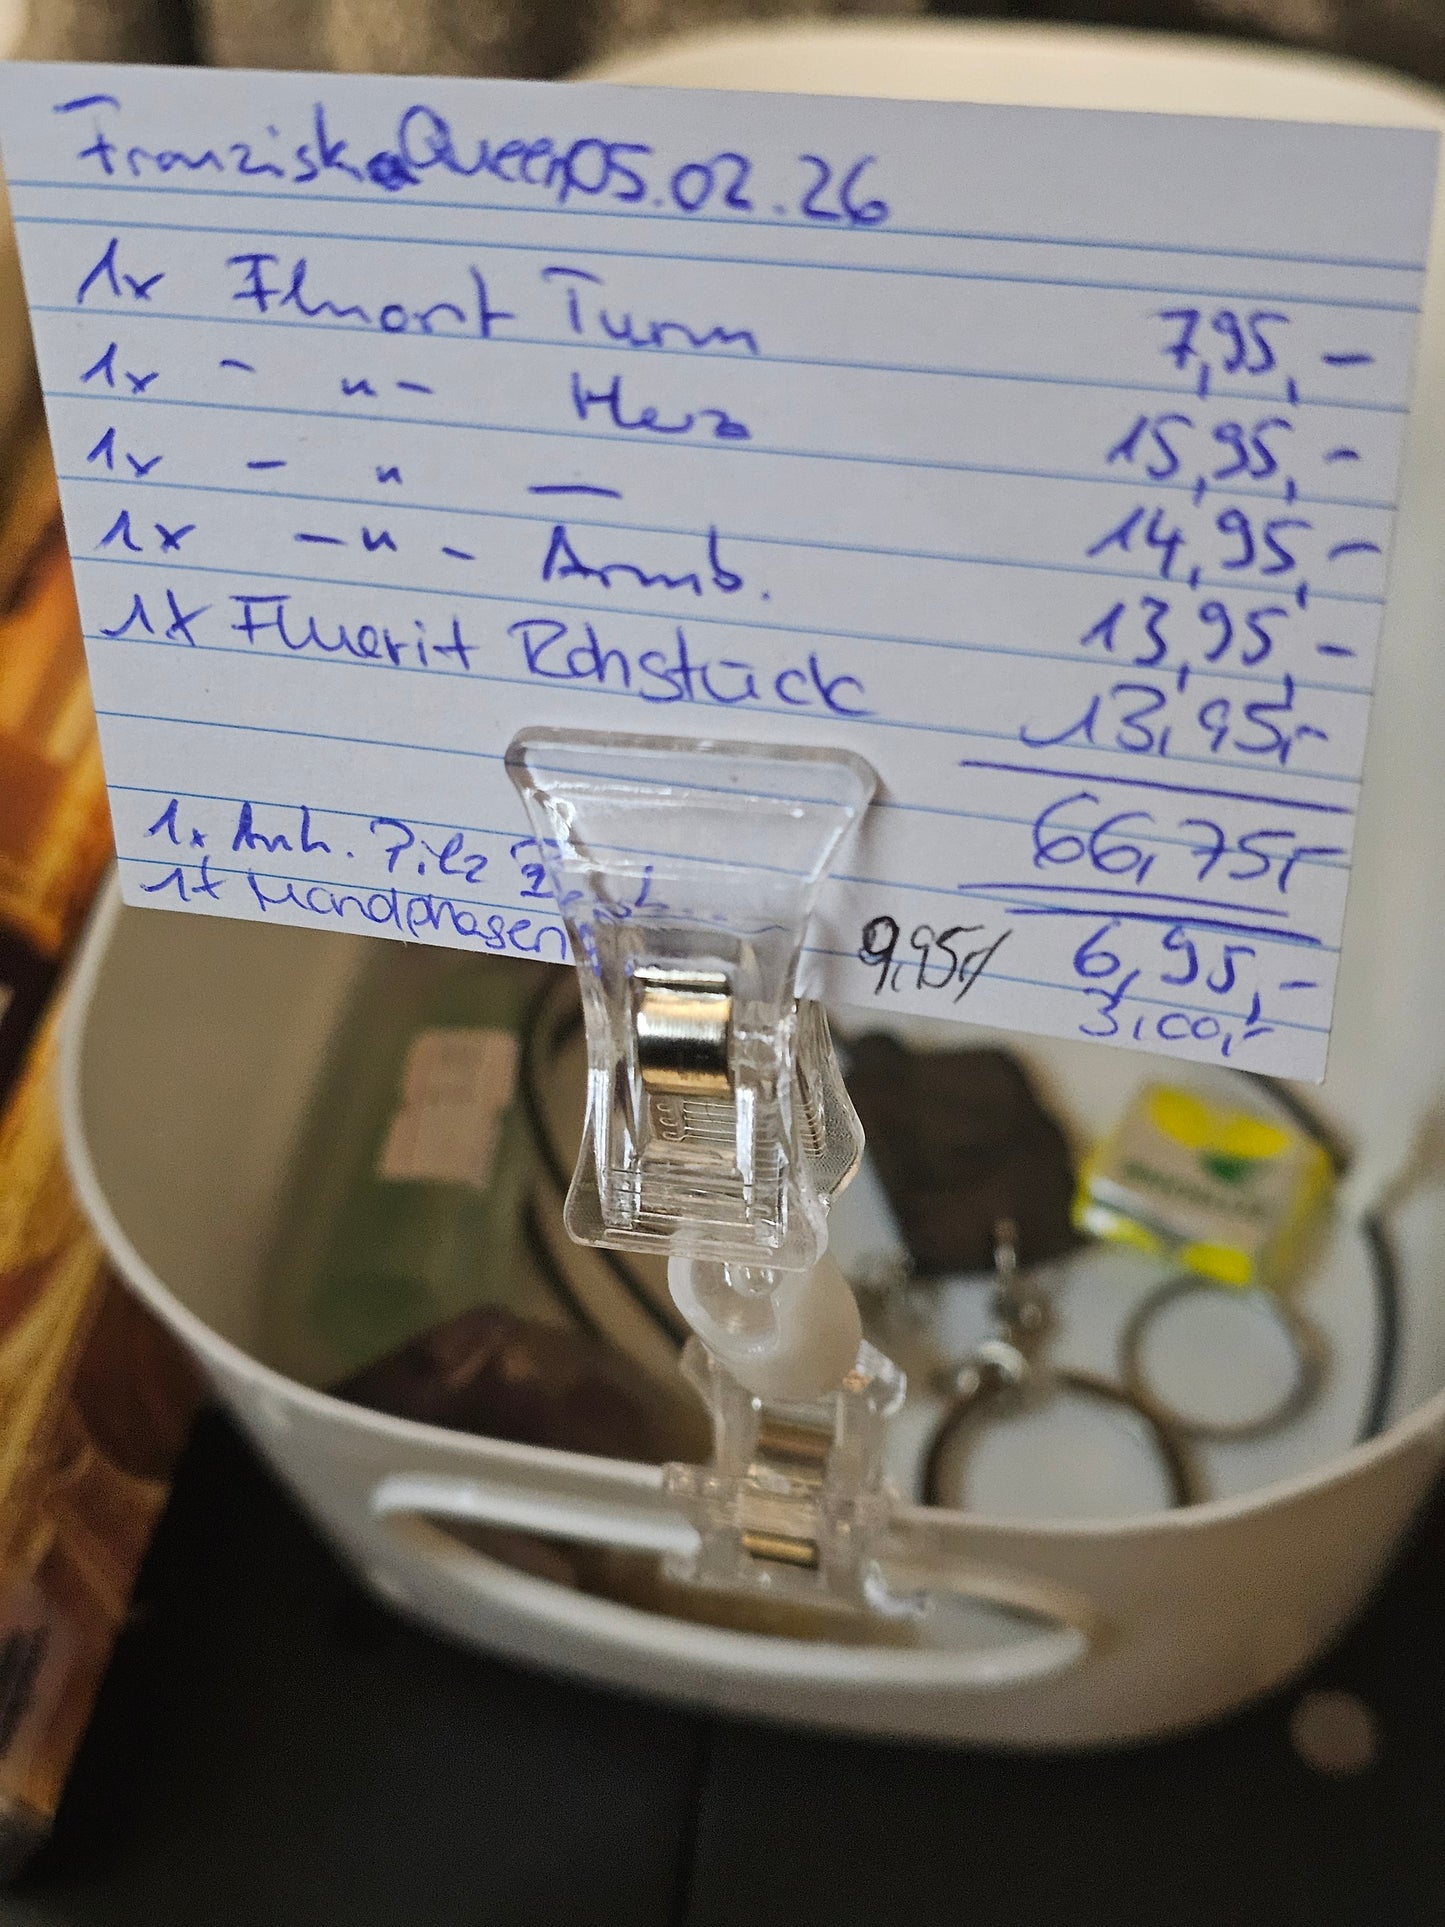 Franziska Queen 05.02.26
1x Fluorit Turm 7,95,-
1x - " - Herz 15,95,-
1x - " — 14,95,-
1x - " - Armb. 13,95,-
1x Fluorit Rohstück 13,95,-
66,75,-
1x Anh. Pilz 6,95,-
1x Mondphasen 9,95,- 3,00,-